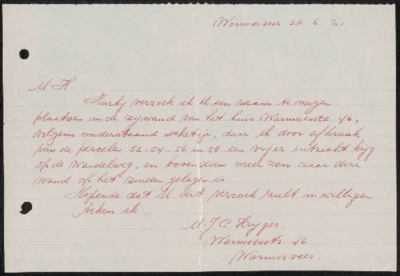 Wormerveer 28.6.'61
M.H.
Hierbij verzoek ik U een raam te mogen
plaatsen in de zijwand van het huis Warmoesstr. 46,
volgens onderstaand schetsje, daar ik door afbraak
van de percelen 52-54-56 en 58 een vrijer uitzicht krijg
op de Wandelweg, en bovendien meer zon daar deze
wand op het Zuiden gelegen is.
Hopende dat U dit verzoek zult inwilligen
teken ik
M.J.C. Kuyper
Warmoesstr. 46
Wormerveer.